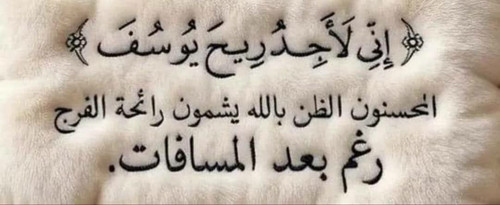 ﴿ إِنِّي لَأَجِدُ رِيحَ يُوسُفَ ﴾
المحسنون الظن بالله يشمون رائحة الفرج
رغم بعد المسافات.